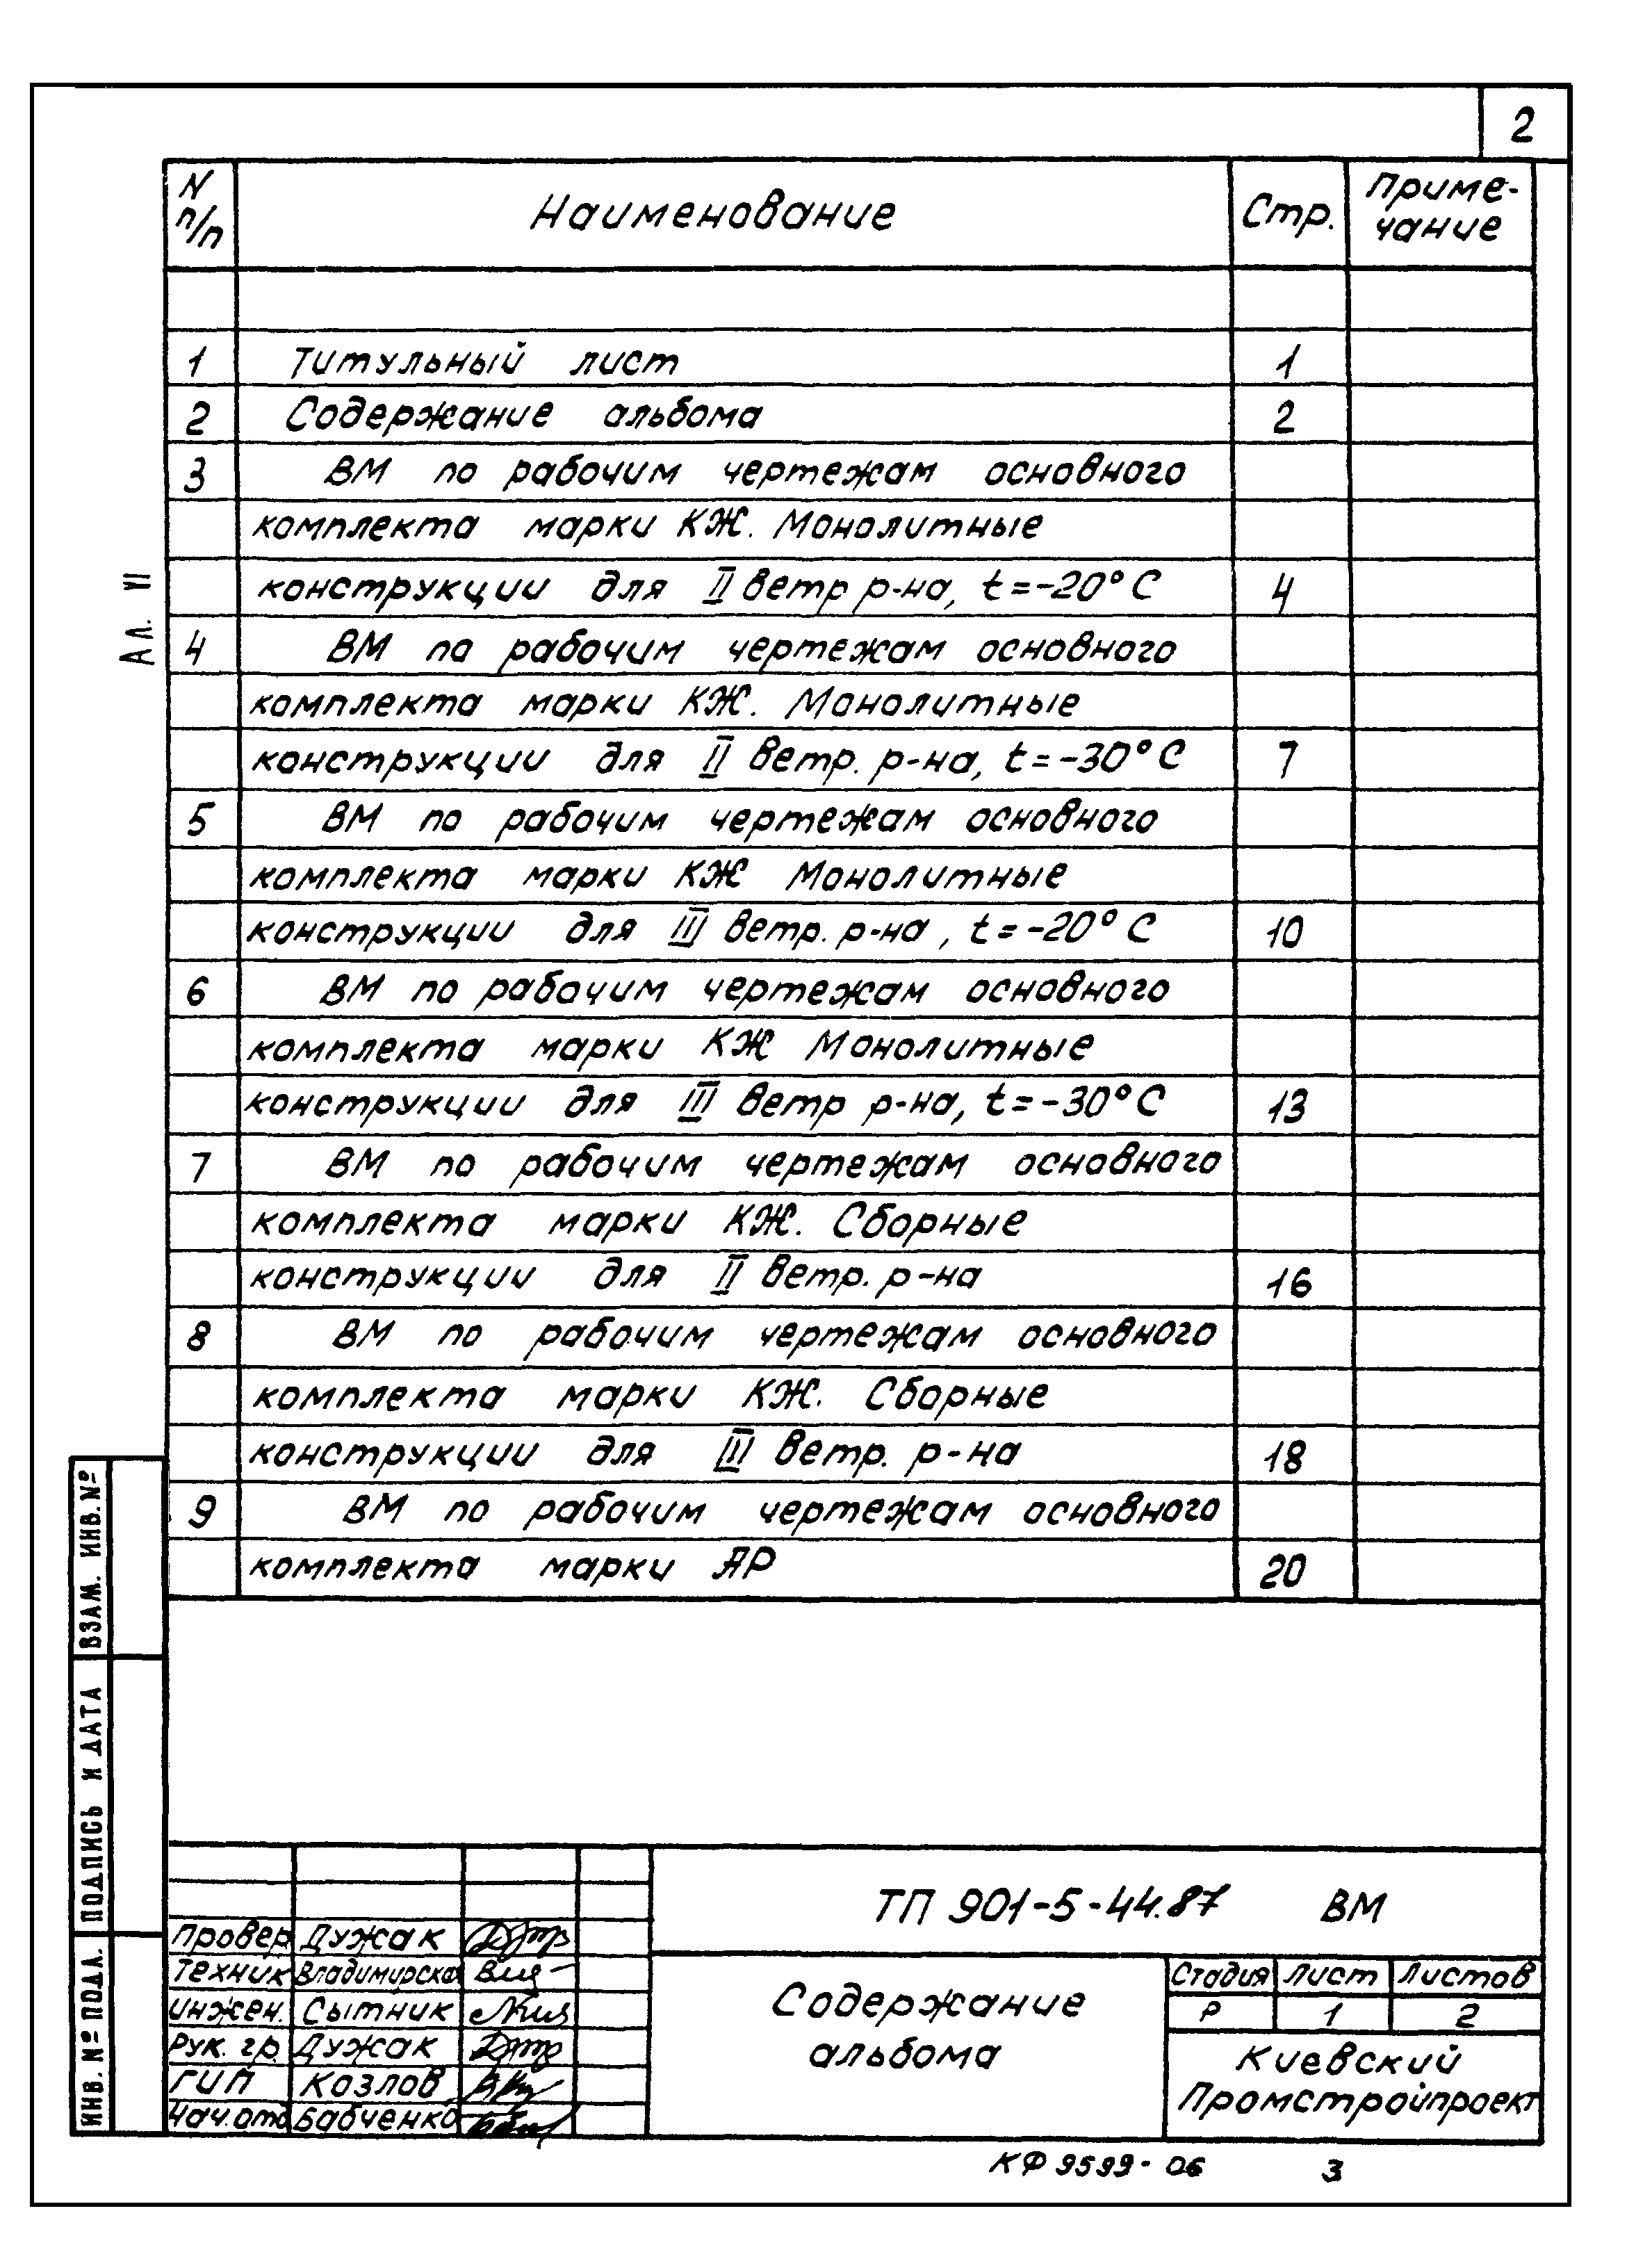 2
N п/п Наименование Стр. Приме-
чание
1 Титульный лист 1
2 Содержание альбома 2
3 ВМ по рабочим чертежам основного
комплекта марки КЖ. Монолитные
конструкции для II ветр р-на, t=-20°С 4
4 ВМ по рабочим чертежам основного
комплекта марки КЖ. Монолитные
конструкции для II ветр. р-на, t=-30°С 7
5 ВМ по рабочим чертежам основного
комплекта марки КЖ Монолитные
конструкции для III ветр. р-на, t=-20°С 10
6 ВМ по рабочим чертежам основного
комплекта марки КЖ Монолитные
конструкции для III ветр р-на, t=-30°С 13
7 ВМ по рабочим чертежам основного
комплекта марки КЖ. Сборные
конструкции для II ветр. р-на 16
8 ВМ по рабочим чертежам основного
комплекта марки КЖ. Сборные
конструкции для III ветр. р-на 18
9 ВМ по рабочим чертежам основного
комплекта марки АР 20
Ал. VI
ВЗАМ. ИНВ. №
ПОДПИСЬ И ДАТА
ИНВ. № ПОДЛ.
ТП 901-5-44.87 ВМ
Провер Дужак
Техник Владимирская
Инжен. Сытник
Рук. гр. Дужак
ГИП Козлов
Нач. отд Бабченко
Содержание
альбома
Стадия Лист Листов
Р 1 2
Киевский
Промстройпроект
КФ 9599-06 3